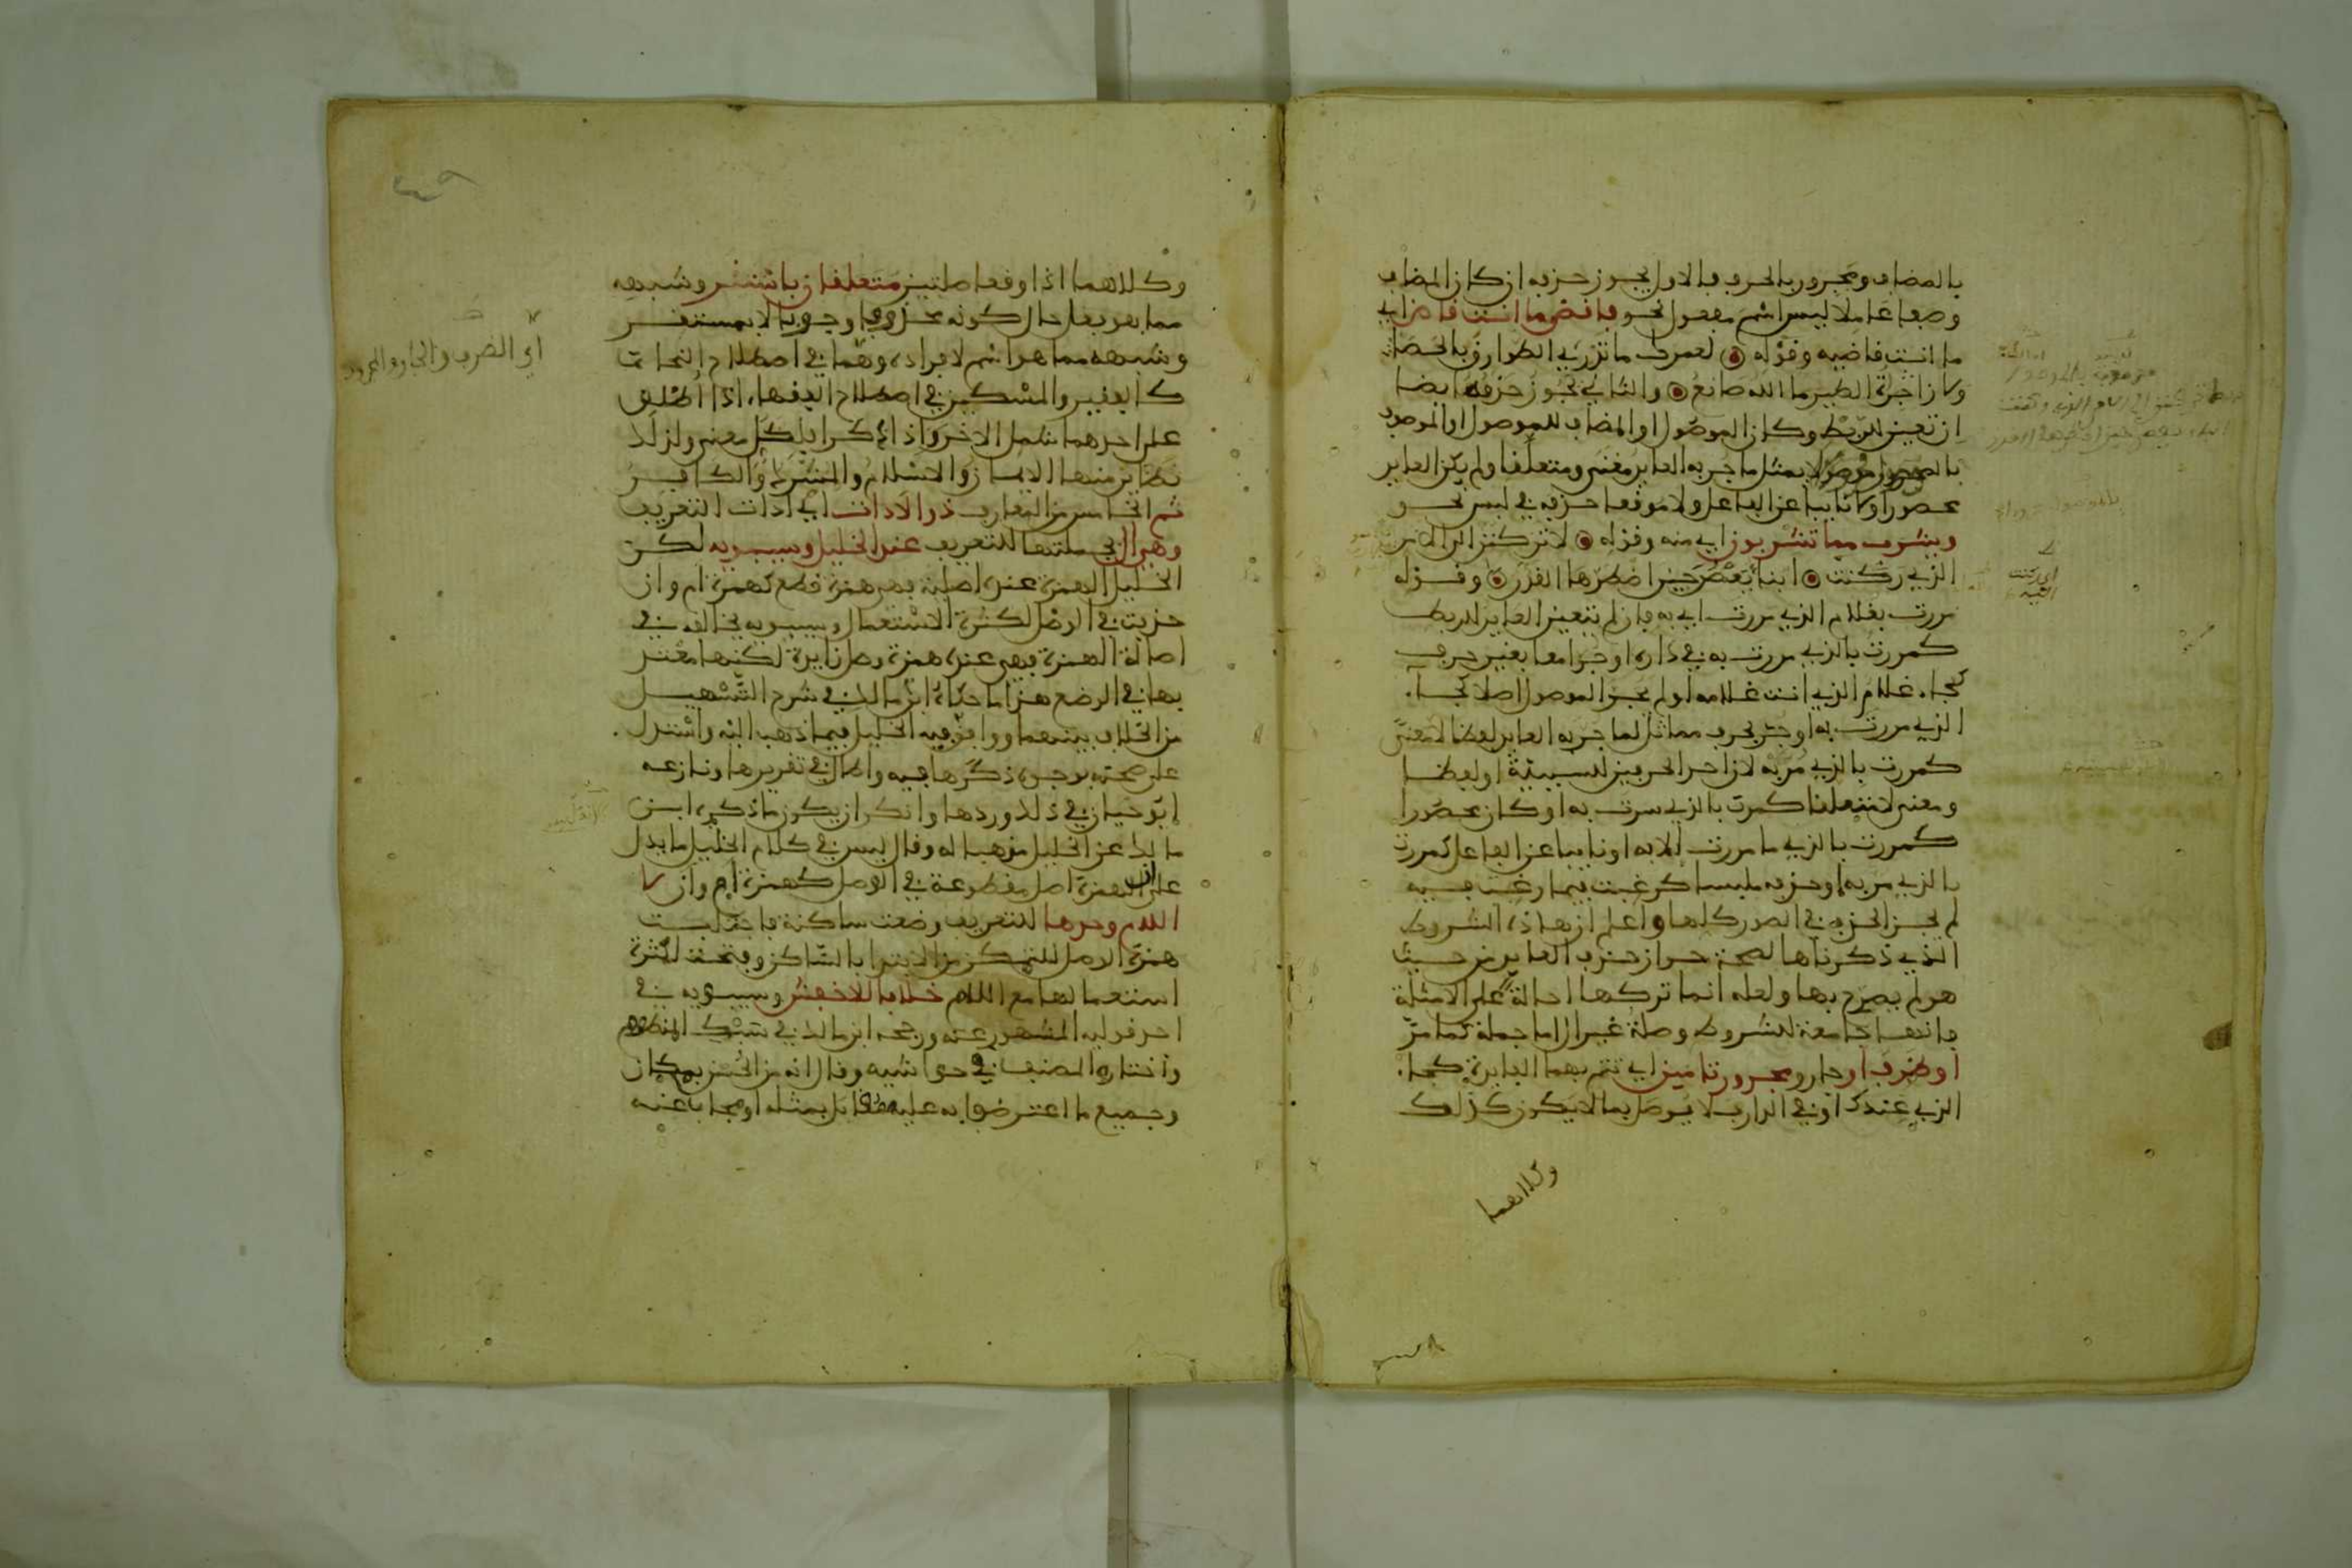 بالمضاف ومجرور بالحرف فالاول يجوز حذفه ان كان المضاف
وصفا عاملا ليس اسم مفعول نحو فاقض ما انت قاض اي
ما انت قاضيه وقوله لعمرك ما تدري الطوارق بالحصا
ولا زاجرات الطير ما الله صانع والثاني يجوز حذفه ايضا
ان تعين للربط وكان الموصول او المضاف للموصول او الموصوف
بالموصول مجرورا بمثل ما جر به العايد معنى ومتعلقا ولم يكن العايد
محصورا ولا نايبا عن الفاعل ولا موقعا حذفه في لبس نحو
ويشرب مما تشربون اي منه وقوله لا تركنن الى الامر
الذي ركنت ابناء يعصر حين اضطرها القدر وقوله
مررت بغلام الذي مررت اي به فان لم يتعين العايد للربط
كمررت بالذي مررت به في داره او جرا معا بغير حرف
كجاء غلام الذي انت غلامه او لم يجر الموصول اصلا كجاء
الذي مررت به او جر بحرف مماثل لما جر به العايد لفظا لا معنى
كمررت بالذي مر به لان احد الحرفين للسببية او لفظا
ومعنى لا متعلقا كمررت بالذي سرت به او كان محصورا
كمررت بالذي ما مررت الا به او نايبا عن الفاعل كمررت
بالذي مر به او حذفه ملبسا كرغبت فيما رغبت فيه
لم يجز الحذف في الصور كلها واعلم ان هاذه الشروط
الذي ذكرناها لصحة جواز حذف العايد من حيث
هو لم يصرح بها ولعله انما تركها احالة على الامثلة
فانها جامعة للشروط وصلة غير ال اما جملة كما مر
او ظرف او جار ومجرور تامين اي تتم بهما الفايدة كجاء
الذي عندك او في الدار فلا يوصل بما لا يكون كذلك
وكلاهما
وكلاهما اذا وقعا صلتين متعلقان باستقر وشبهه
مما هو فعل حال كونه محذوفا وجوبا لا بمستقر
وشبهه مما هو اسم لافراده وهما في اصطلاح النحات
كالفقير والمسكين في اصطلاح الفقهاء اذا اطلق
على احدهما شمل الاخر واذا ذكرا فلكل معنى ولذلك
نظاير منها الايمان والاسلام والمشرك والكافر
ثم الخامس من المعارف ذو الادات اي ادات التعريف
وهي ال بجملتها للتعريف عند الخليل وسيبويه لكن
الخليل الهمزة عنده اصلية فهي همزة قطع كهمزة ام وان
حذفت في الوصل لكثرة الاستعمال وسيبويه يخالفه في
اصالة الهمزة فهي عنده همزة وصل زايدة لكنها معتد
بها في الوضع هذا ما حكاه ابن مالك في شرح التسهيل
من الخلاف بينهما ووافق فيه الخليل فيما ذهب اليه واستدل
على صحته بوجوه ذكرها فيه واطال في تقريرها ونازعه
ابو حيان في ذلك وردها وانكر ان يكون ما ذكره ابن
مالك عن الخليل مذهبا له وقال ليس في كلام الخليل ما يدل
على ان الهمزة اصل مقطوعة في الوصل كهمزة ام وان لا
اللام وحدها للتعريف وضعت ساكنة فاجتلبت
همزة الوصل للتمكن من الابتدا بالساكن وفتحت لكثرة
استعمالها مع اللام خلافا للاخفش وسيبويه في
احد قوليه المشهور عنه ورجحه ابن مالك في سبك المنظوم
واختاره المصنف في حواشيه وقال انه من الحسن بمكان
وجميع ما اعترض به عليه مقابل بمثله او مجاب عنه
اي الظرف والجار والمجرور